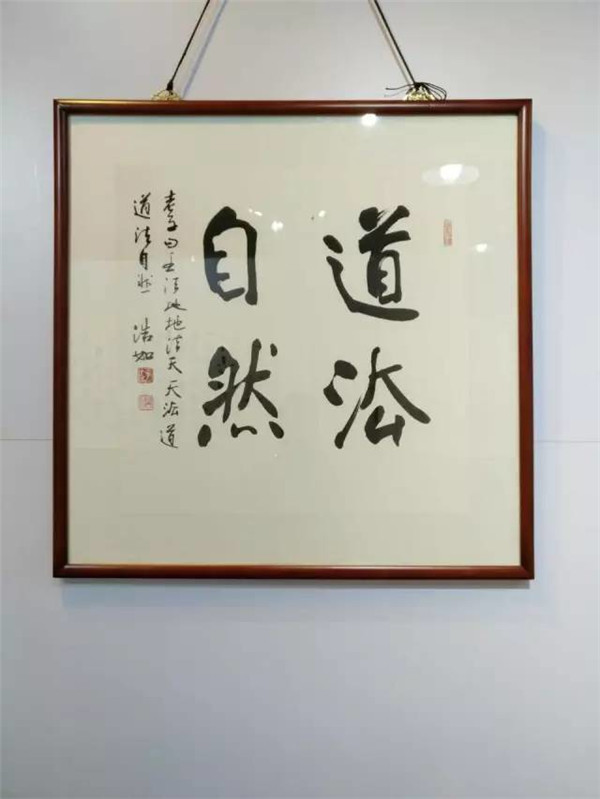 道法
自然
老子曰王法地地法天天法道
道法自然 浩如